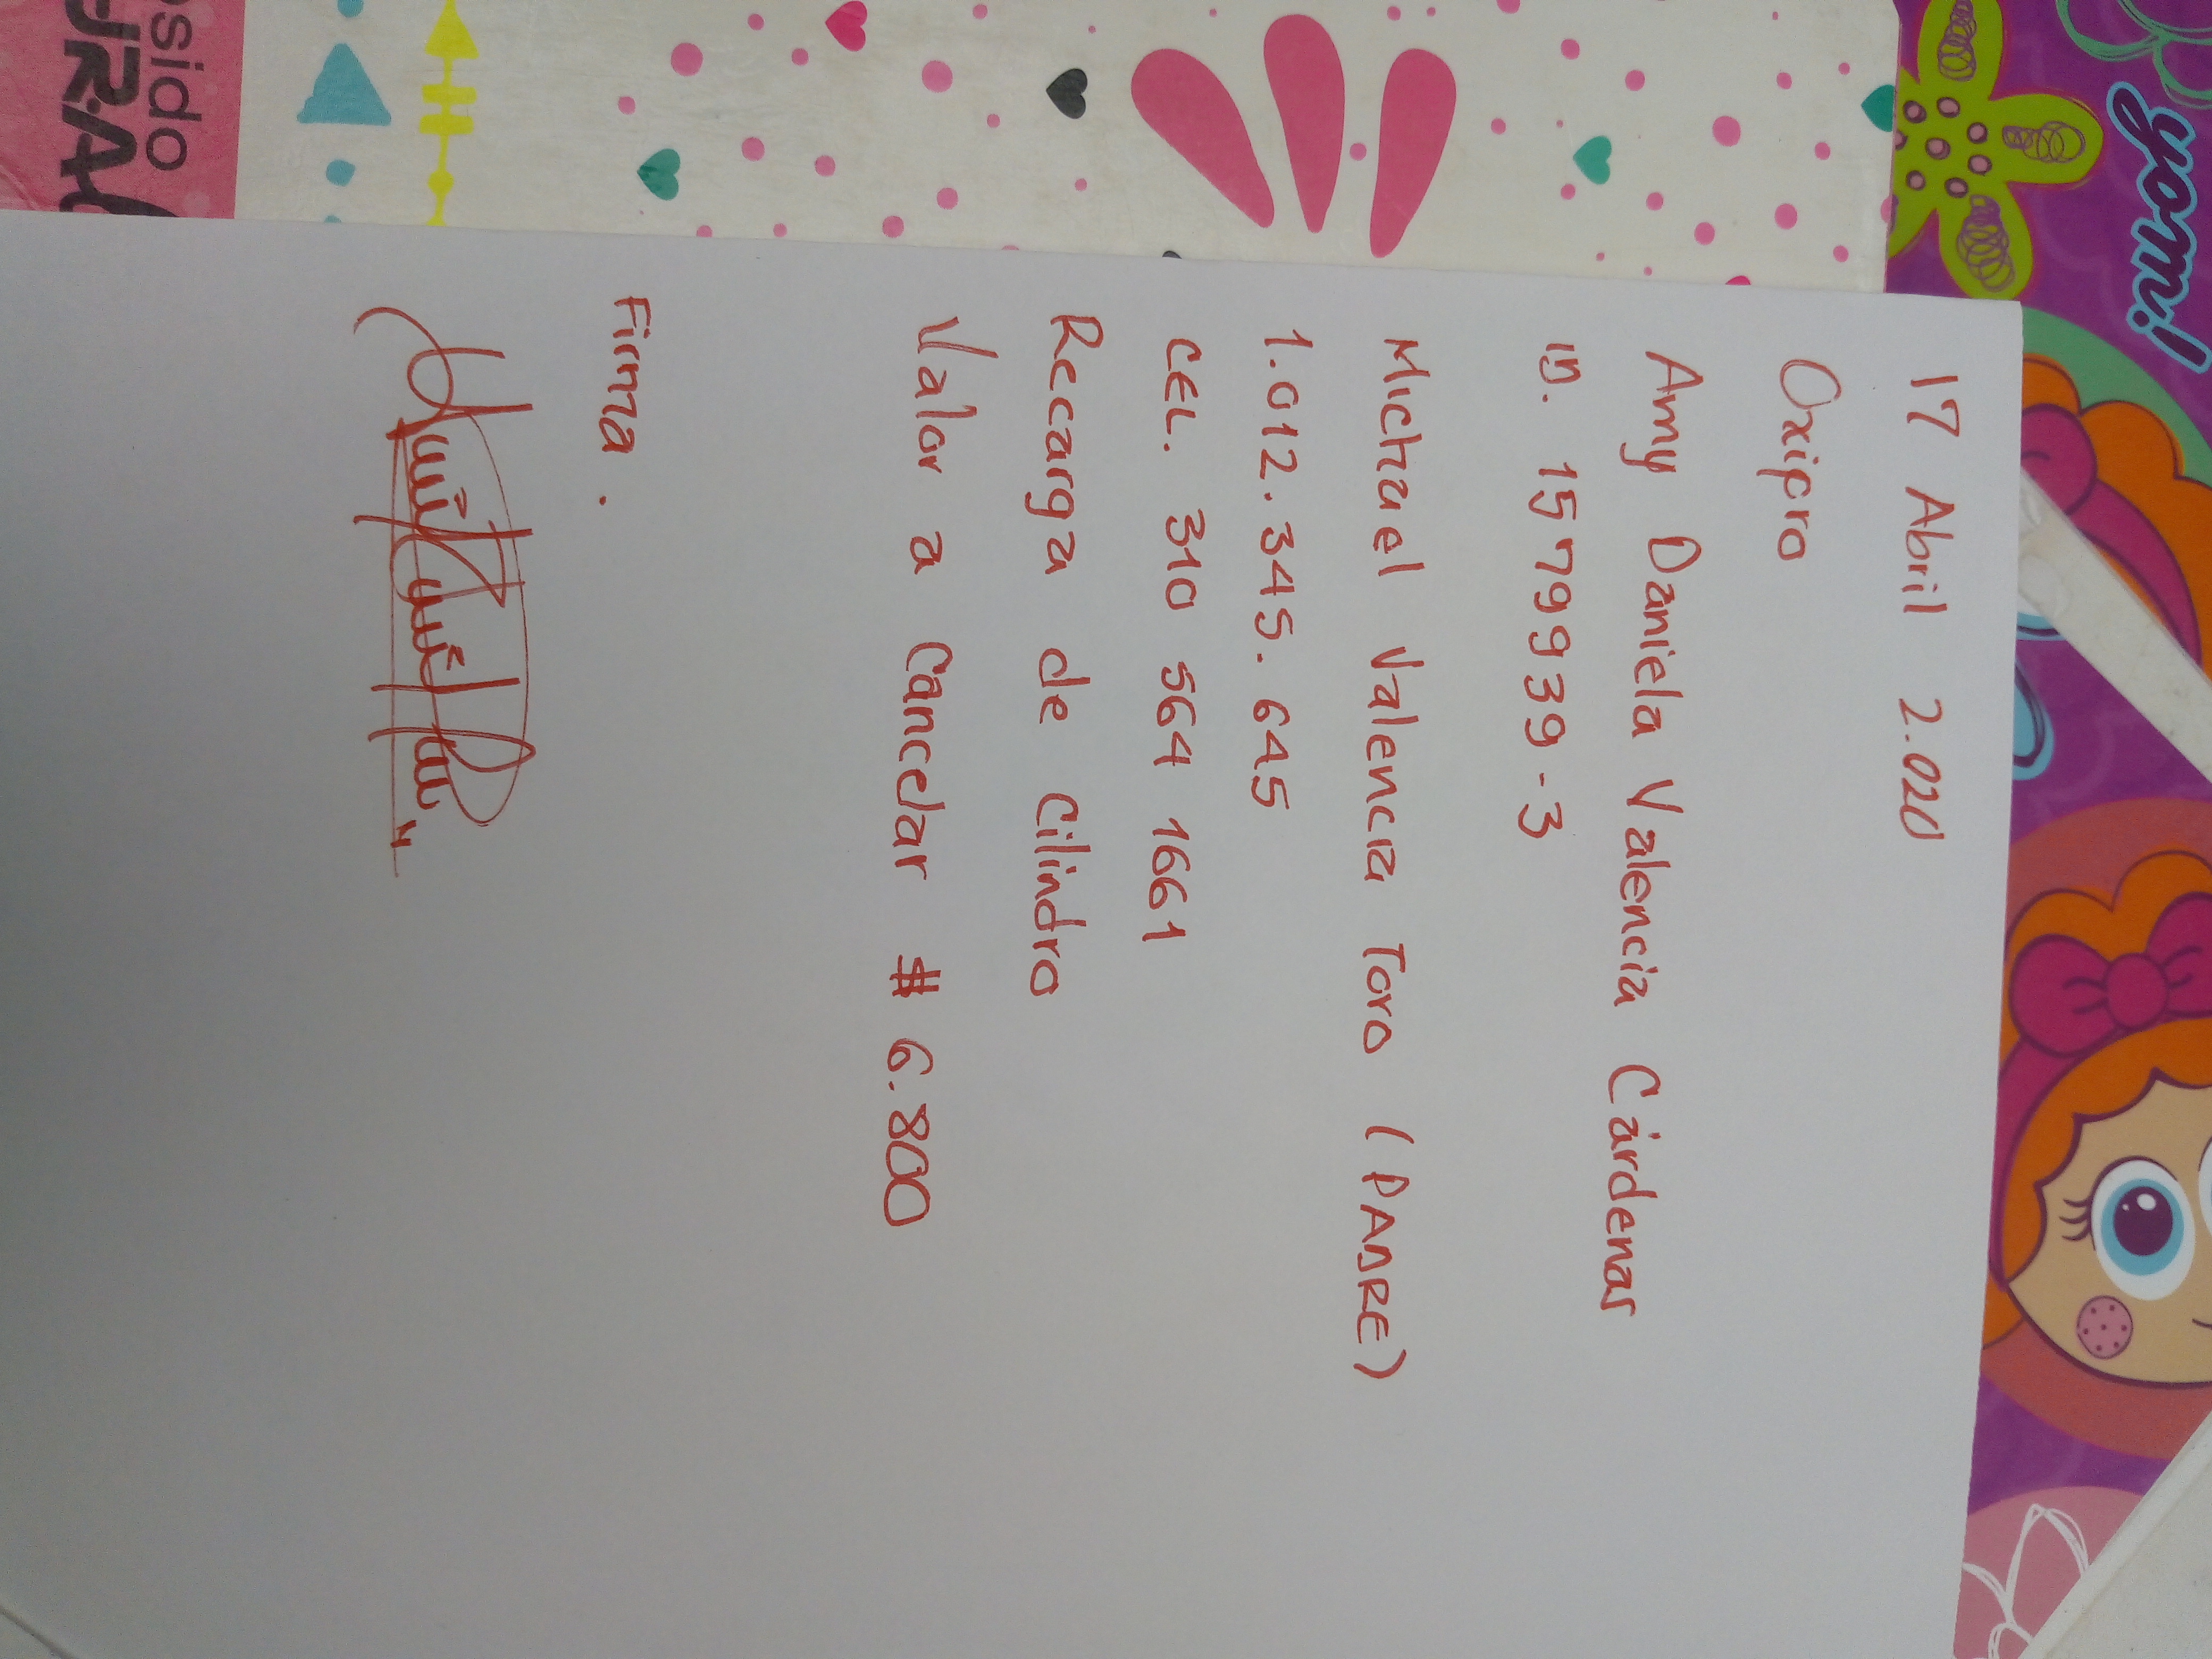 17 Abril 2.020
Oxipro
Amy Daniela Valencia Cárdenas
ID. 15799939-3
Michael Valencia Toro (PADRE)
1.012.345.645
CEL. 310 564 1661
Recarga de Cilindro
Valor a Cancelar $ 6.800
Firma.
yom!